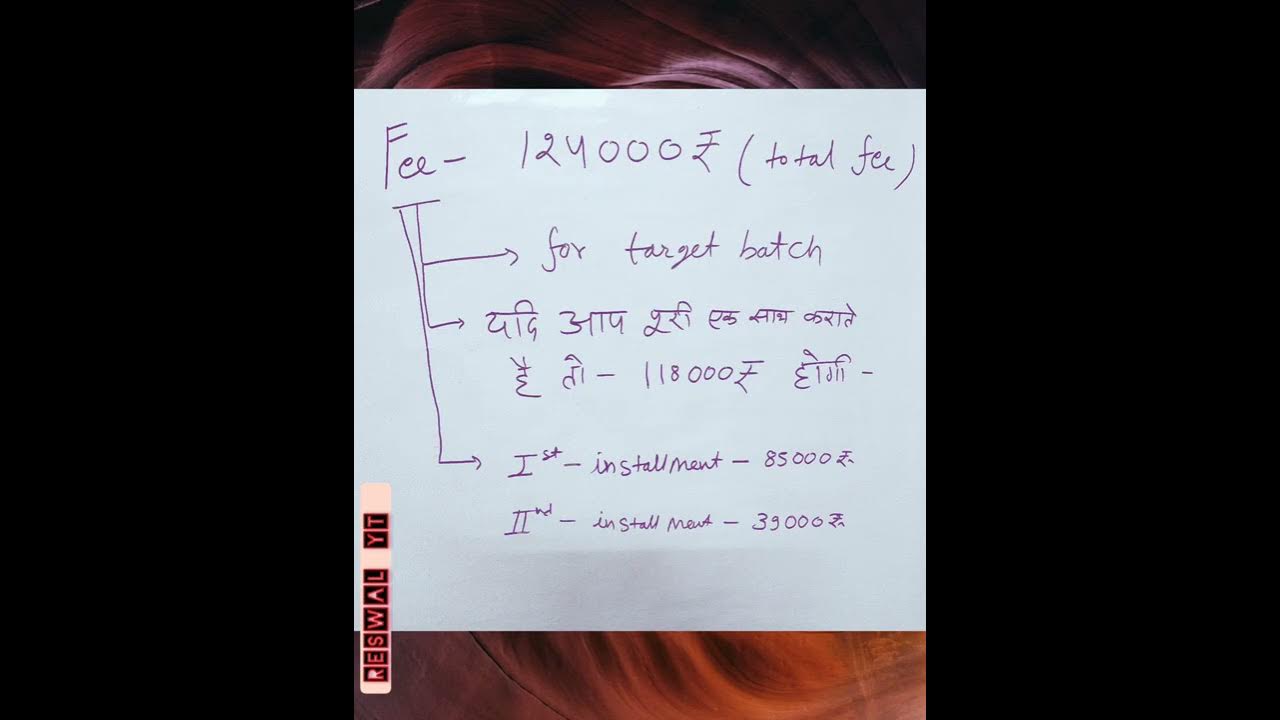 Fee - 124000₹ (total fee)
for target batch
यदि आप पूरी एक साथ कराते
है तो - 118000₹ होगी -
Ist - installment - 85000₹
IInd - installment - 39000₹
RESWAL YT